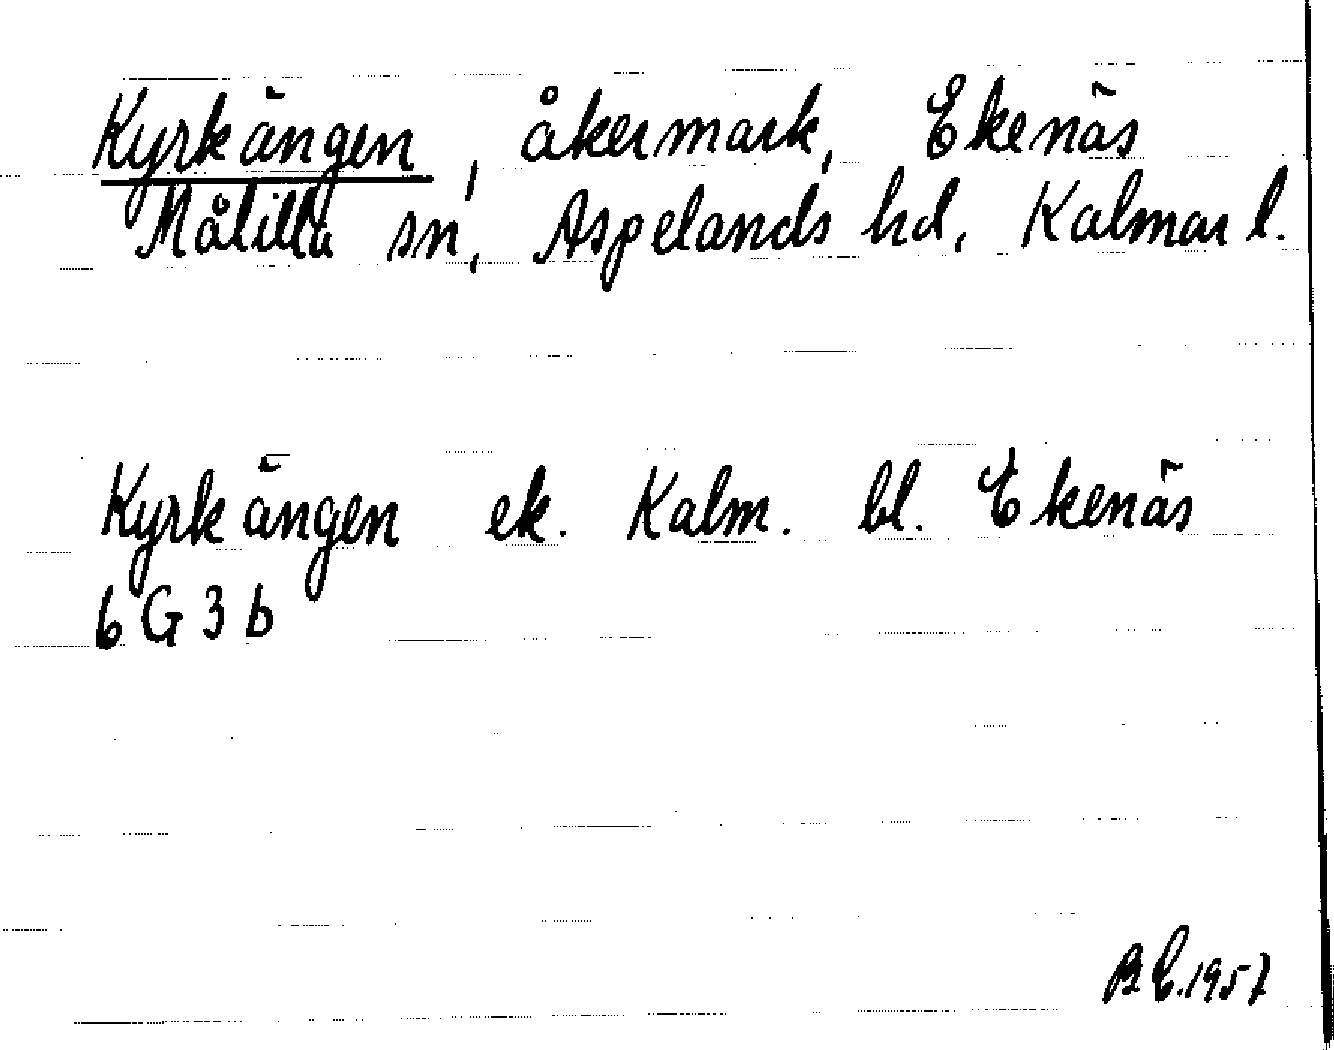 Kyrkängen, åkermark, Ekenäs
Målilla sn, Aspelands hd, Kalmar l.
Kyrkängen ek. Kalm. bl. Ekenäs
6 G 3 b
B C. 1957